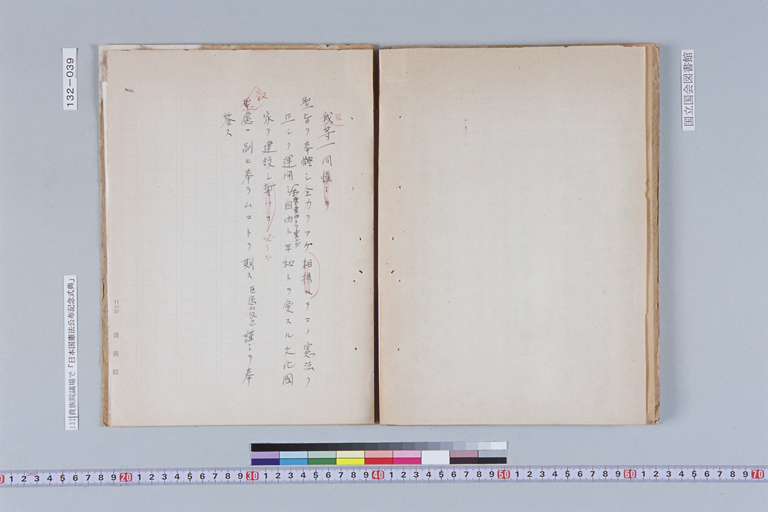 我等一同慎ミテ
聖旨ヲ奉體シ全力ヲアゲ相携ヘテコノ憲法ヲ
正シク運用シ自由ト平和トヲ愛スル文化國
家ヲ建設シ誓ツテ必ラズ
叡慮ニ副ヒ奉ラムコトヲ期ス 謹ミテ奉
答ス
No.
貴族院
132-039
132 貴族院議場で「日本国憲法公布記念式典」
国立国会図書館
0 1 2 3 4 5 6 7 8 9 20 1 2 3 4 5 6 7 8 9 30 1 2 3 4 5 6 7 8 9 40 1 2 3 4 5 6 7 8 9 50 1 2 3 4 5 6 7 8 9 60 1 2 3 4 5 6 7 8 9 70